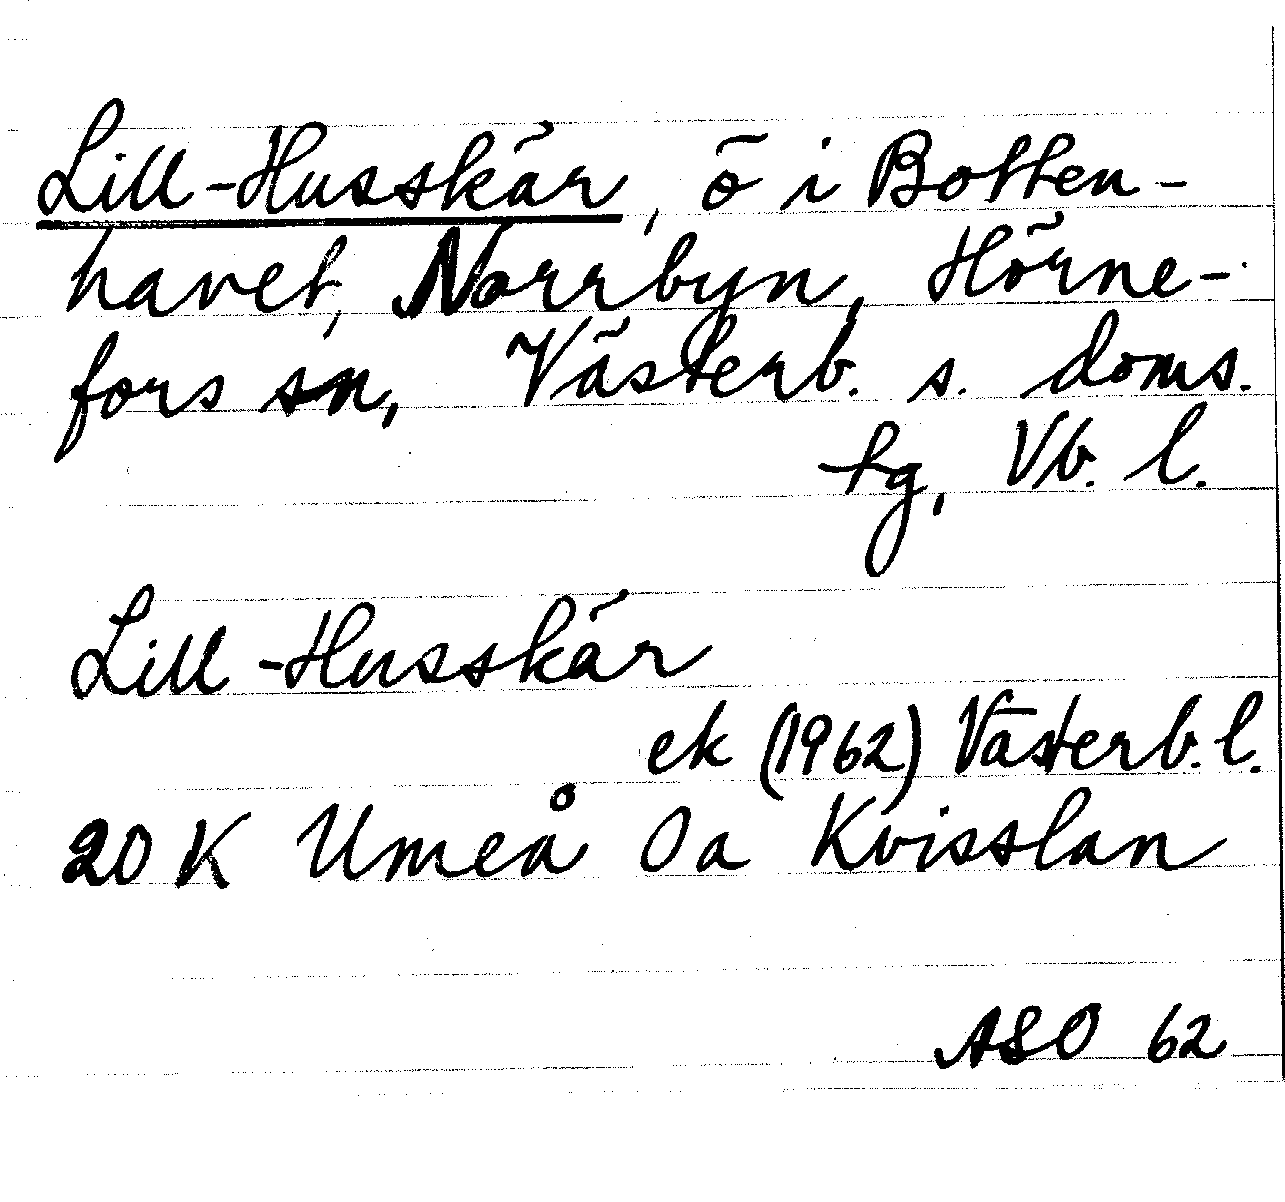 Lill-Husskär, ö i Botten-
havet, Norrbyn, Hörne-
fors sn, Västerb. s. doms.
tg, Vb. l.
Lill-Husskär
ek (1962) Västerb. l.
20 K Umeå 0a Kvisslan
ASO 62